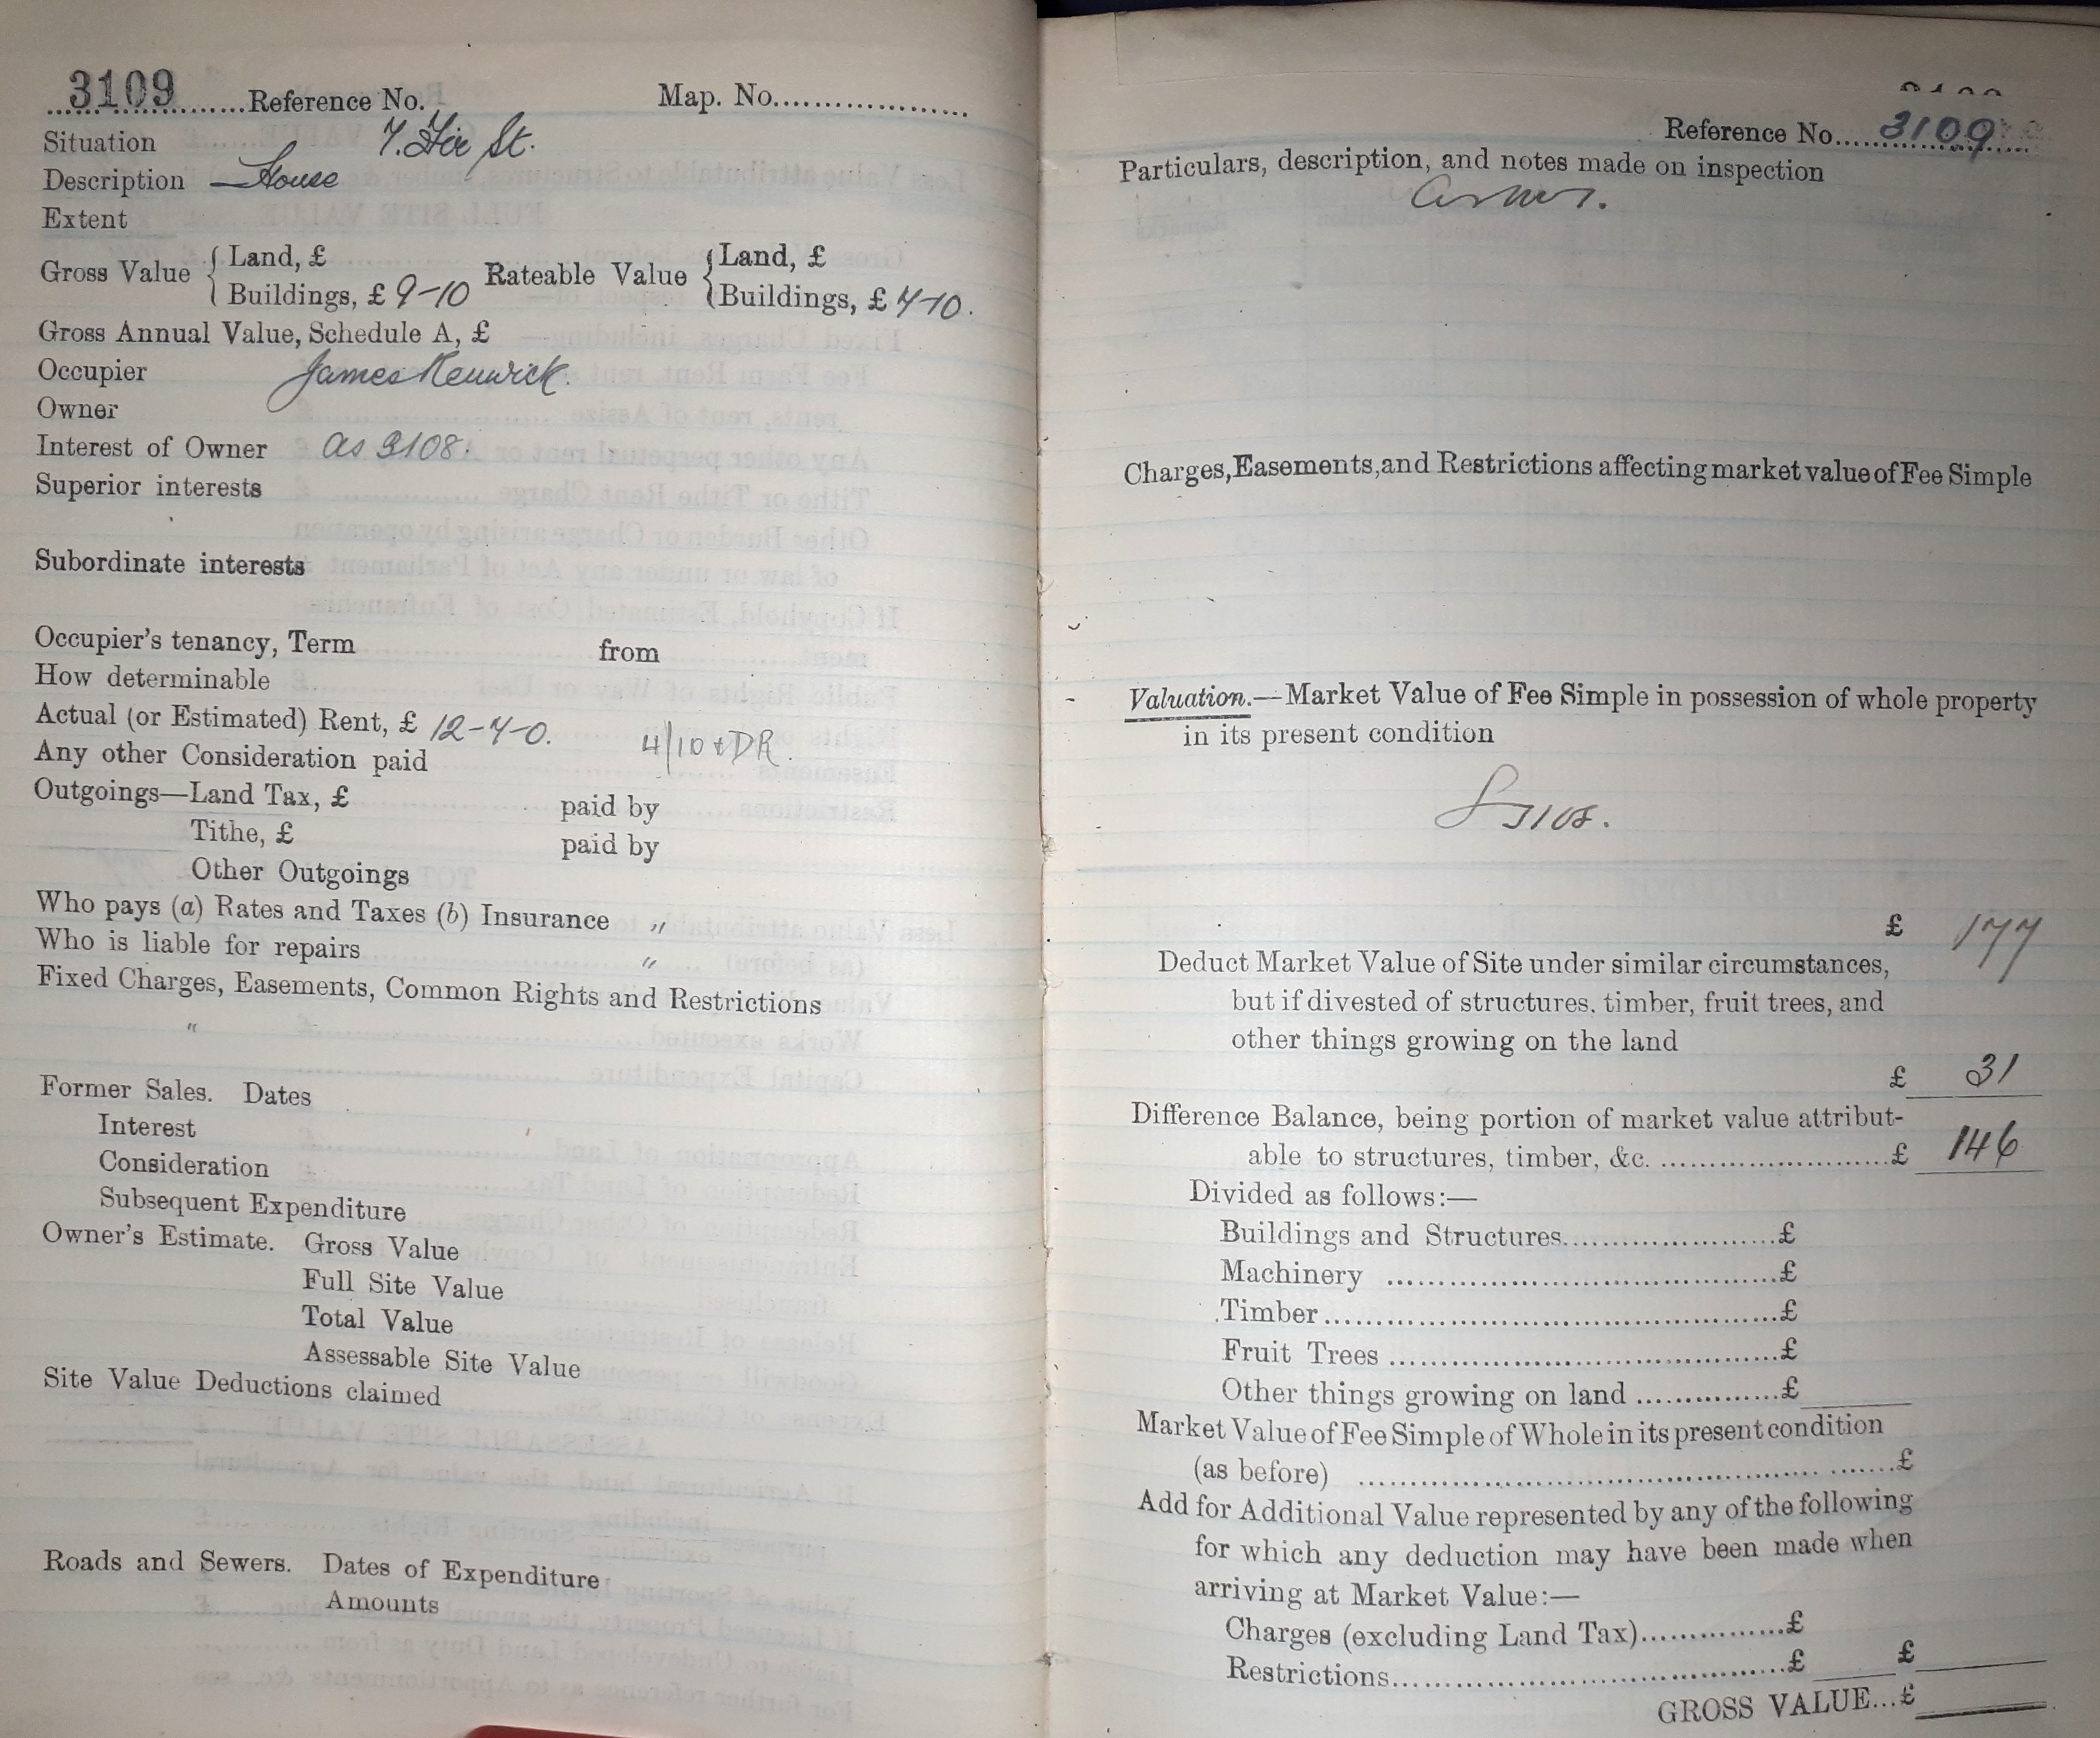 3109 Reference No. Map. No.
Situation 7. Fir St.
Description House
Extent
Gross Value { Land, £ Rateable Value { Land, £
Buildings, £ 9-10 Buildings, £ 7-10.
Gross Annual Value, Schedule A, £
Occupier James Renwick.
Owner
Interest of Owner as 3108.
Superior interests
Subordinate interests
Occupier's tenancy, Term from
How determinable
Actual (or Estimated) Rent, £ 12-7-0. 4/10 & DR.
Any other Consideration paid
Outgoings—Land Tax, £ paid by
Tithe, £ paid by
Other Outgoings
Who pays (a) Rates and Taxes (b) Insurance "
Who is liable for repairs "
Fixed Charges, Easements, Common Rights and Restrictions
"
Former Sales. Dates
Interest
Consideration
Subsequent Expenditure
Owner's Estimate. Gross Value
Full Site Value
Total Value
Assessable Site Value
Site Value Deductions claimed
Roads and Sewers. Dates of Expenditure
Amounts
Reference No. 3109
Particulars, description, and notes made on inspection
Charges, Easements, and Restrictions affecting market value of Fee Simple
Valuation.—Market Value of Fee Simple in possession of whole property
in its present condition
3108.
£ 177
Deduct Market Value of Site under similar circumstances,
but if divested of structures. timber, fruit trees, and
other things growing on the land
£ 31
Difference Balance, being portion of market value attribut-
able to structures, timber, &c. £ 146
Divided as follows:—
Buildings and Structures £
Machinery £
Timber £
Fruit Trees £
Other things growing on land £
Market Value of Fee Simple of Whole in its present condition
(as before) £
Add for Additional Value represented by any of the following
for which any deduction may have been made when
arriving at Market Value:—
Charges (excluding Land Tax) £
Restrictions £ £
GROSS VALUE...£